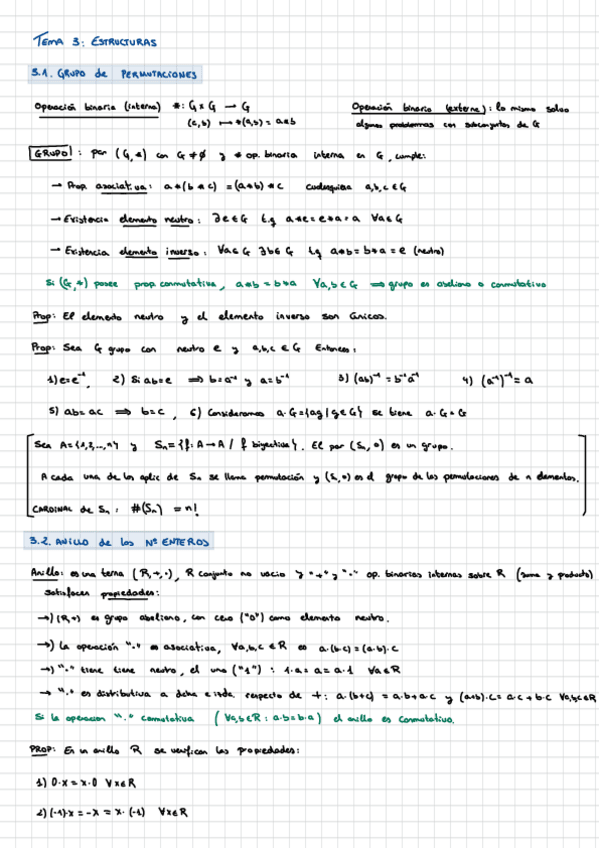 TEMA 3: ESTRUCTURAS
3.1. GRUPO de PERMUTACIONES
Operación binaria (interna) *: G x G → G
(a,b) ↦ *(a,b) = a*b
Operación binaria (externa): lo mismo salvo
algunos problemas con subconjuntos de G
GRUPO: par (G,*) con G ≠ ∅ y * op. binaria interna en G, cumple:
→ Prop asociativa: a*(b*c) = (a*b)*c cualesquiera a,b,c ∈ G
→ Existencia elemento neutro: ∃e∈G t.q a*e=e*a=a ∀a∈G
→ Existencia elemento inverso: ∀a∈G ∃b∈G t.q a*b=b*a=e (neutro)
Si (G,*) posee prop. conmutativa, a*b = b*a ∀a,b∈G ⟹ grupo es abeliano o conmutativo
Prop: El elemento neutro y el elemento inverso son únicos.
Prop: Sea G grupo con neutro e y a,b,c ∈ G Entonces:
1) e=e⁻¹, 2) Si ab=e ⟹ b=a⁻¹ y a=b⁻¹ 3) (ab)⁻¹ = b⁻¹a⁻¹ 4) (a⁻¹)⁻¹ = a
5) ab=ac ⟹ b=c, 6) Consideramos a·G={ag|g∈G} se tiene a·G=G
Sea A={1,2,...,n} y Sₙ={f: A→A / f biyectiva}. El par (Sₙ, ∘) es un grupo.
A cada una de las aplic de Sₙ se llama permutación y (Sₙ,∘) es el grupo de las permutaciones de n elementos.
CARDINAL de Sₙ: #(Sₙ) = n!
3.2. ANILLO de los Nº ENTEROS
Anillo: es una terna (R,+,·), R conjunto no vacío y "+" y "·" op. binarias internas sobre R (suma y producto)
satisfaces propiedades:
→) (R,+) es grupo abeliano, con cero ("0") como elemento neutro.
→) La operación "·" es asociativa, ∀a,b,c∈R es a·(b·c)=(a·b)·c
→) "·" tiene tiene neutro, el uno ("1"): 1·a=a=a·1 ∀a∈R
→ "·" es distributiva a dcha e izda. respecto de +: a·(b+c) = a·b+a·c y (a+b)·c=a·c+b·c ∀a,b,c∈R
Si la operacion "·" conmutativa (∀a,b∈R: a·b=b·a) el anillo es conmutativo.
PROP: En un anillo R se verifican las propiedades:
1) 0·x = x·0 ∀x∈R
2) (-1)·x = -x = x·(-1) ∀x∈R